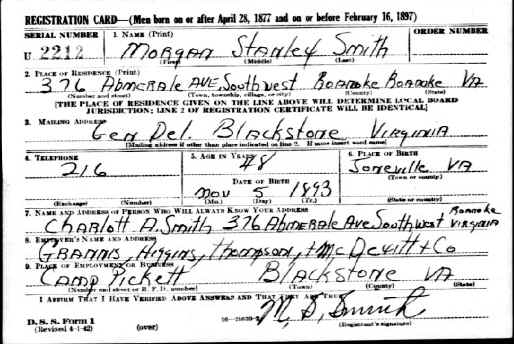 REGISTRATION CARD—(Men born on or after April 28, 1877 and on or before February 16, 1897)
SERIAL NUMBER 1. NAME (Print) ORDER NUMBER
U 2212 MORGAN Stanley Smith
(First) (Middle) (Last)
2. PLACE OF RESIDENCE (Print)
376 ADMERALE AVE. Southwest ROANOKE ROANOKE VA
(Number and street) (Town, township, village, or city) (County) (State)
[THE PLACE OF RESIDENCE GIVEN ON THE LINE ABOVE WILL DETERMINE LOCAL BOARD
JURISDICTION; LINE 2 OF REGISTRATION CERTIFICATE WILL BE IDENTICAL]
3. MAILING ADDRESS
Gen Del. Blackstone Virginia
[Mailing address if other than place indicated on line 2. If same insert word same]
4. TELEPHONE 5. AGE IN YEARS 6. PLACE OF BIRTH
216 48 Joneville VA
DATE OF BIRTH (Town or county)
Nov 5 1893
(Exchange) (Number) (Mo.) (Day) (Yr.) (State or country)
7. NAME AND ADDRESS OF PERSON WHO WILL ALWAYS KNOW YOUR ADDRESS
Charlott A. Smith 376 ADMERALE Ave Southwest Roanoke VIRGINIA
8. EMPLOYER'S NAME AND ADDRESS
GRANNIS, Higgins, Thompson, + McDevitt + Co
9. PLACE OF EMPLOYMENT OR BUSINESS
CAMP PICKETT BLACKSTONE VA
(Number and street or R. F. D. number) (Town) (County) (State)
I AFFIRM THAT I HAVE VERIFIED ABOVE ANSWERS AND THAT THEY ARE TRUE.
M. S. Smith
D. S. S. Form 1
(Revised 4-1-42) (over) (Registrant's signature)